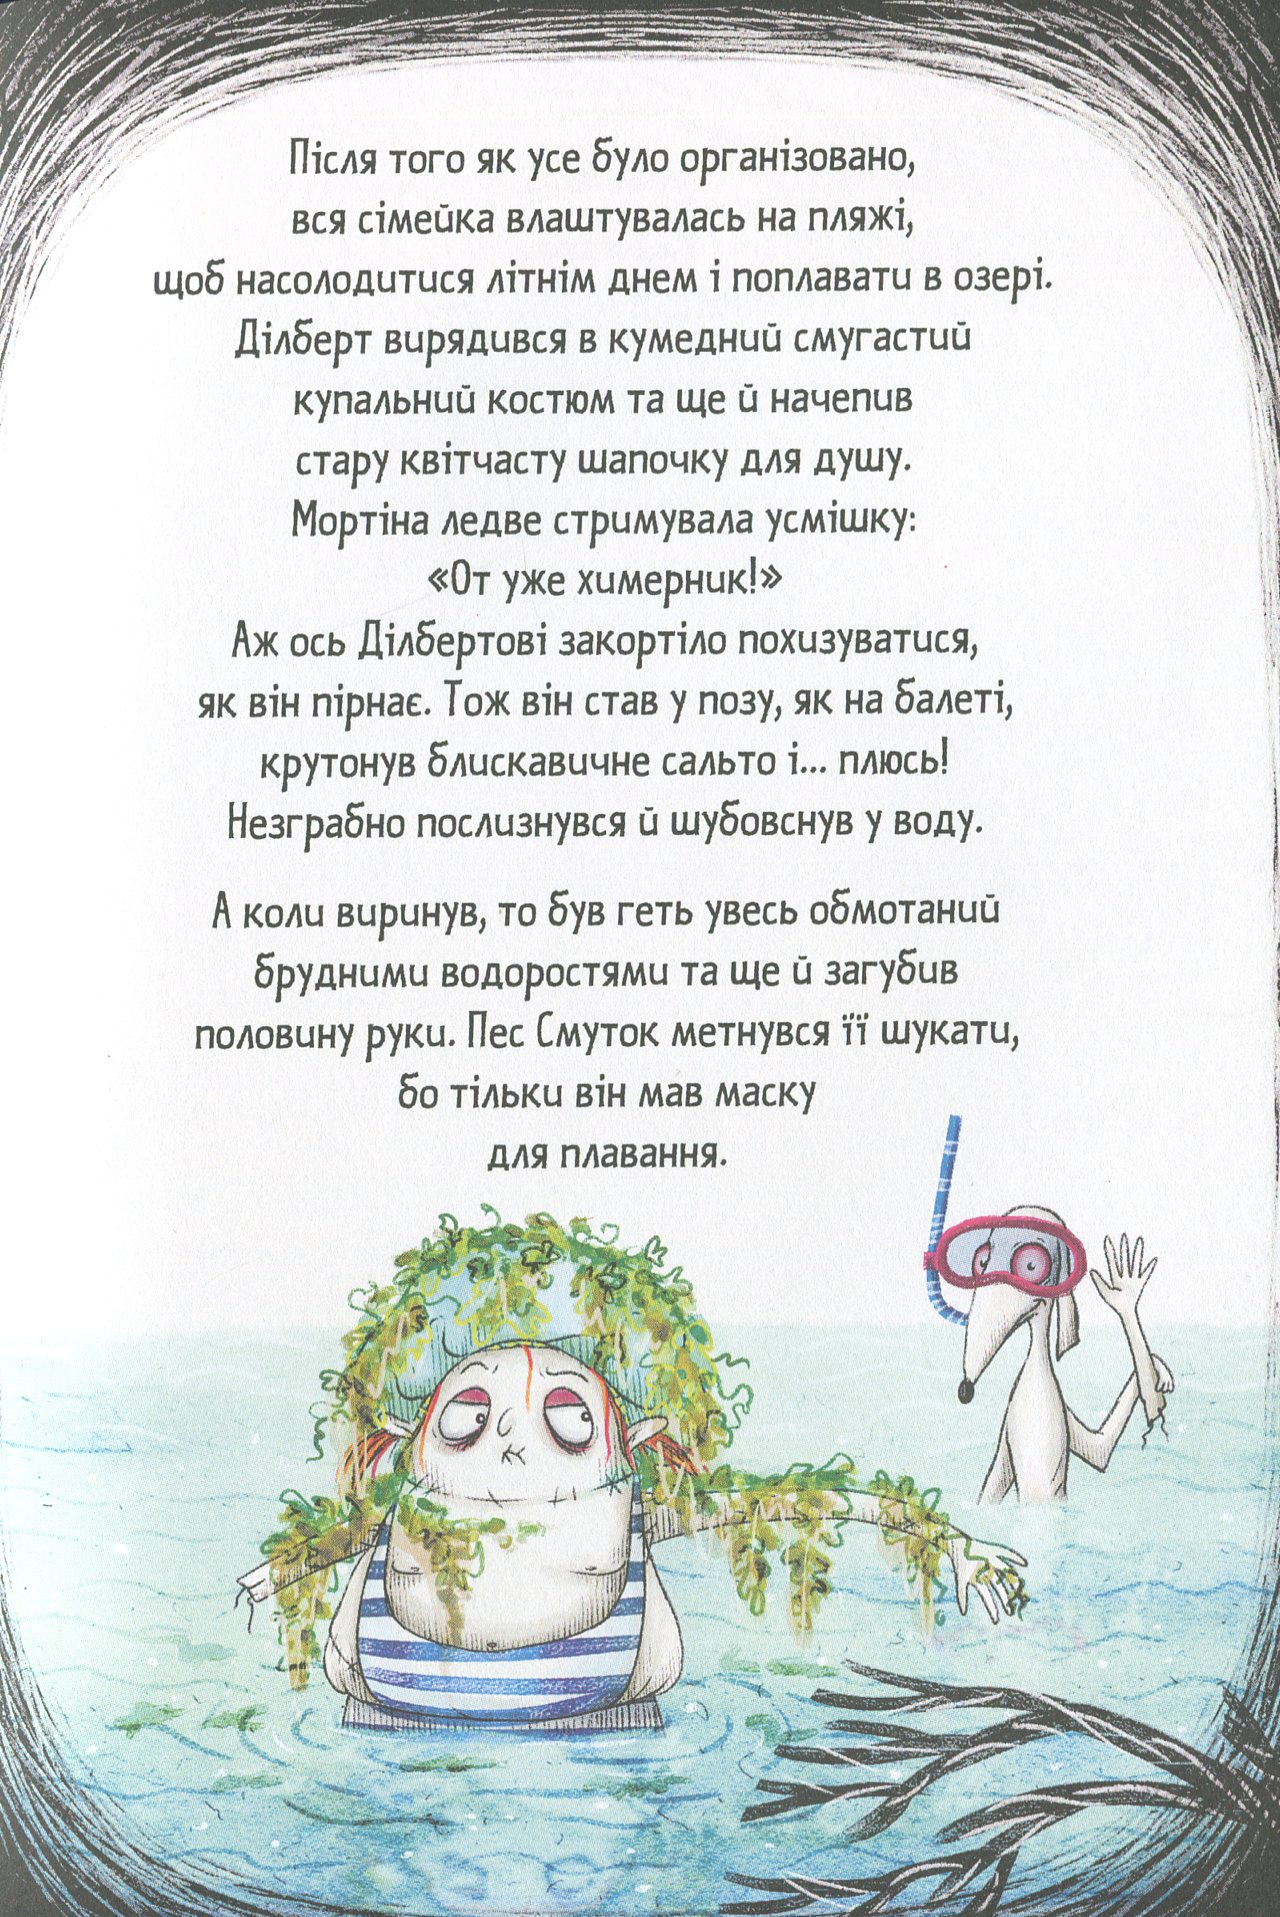 Після того як усе було організовано,
вся сімейка влаштувалась на пляжі,
щоб насолодитися літнім днем і поплавати в озері.
Ділберт вирядився в кумедний смугастий
купальний костюм та ще й начепив
стару квітчасту шапочку для душу.
Мортіна ледве стримувала усмішку:
«От уже химерник!»
Аж ось Ділбертові закортіло похизуватися,
як він пірнає. Тож він став у позу, як на балеті,
крутонув блискавичне сальто і... плюсь!
Незграбно послизнувся й шубовснув у воду.
А коли виринув, то був геть увесь обмотаний
брудними водоростями та ще й загубив
половину руки. Пес Смуток метнувся її шукати,
бо тільки він мав маску
для плавання.